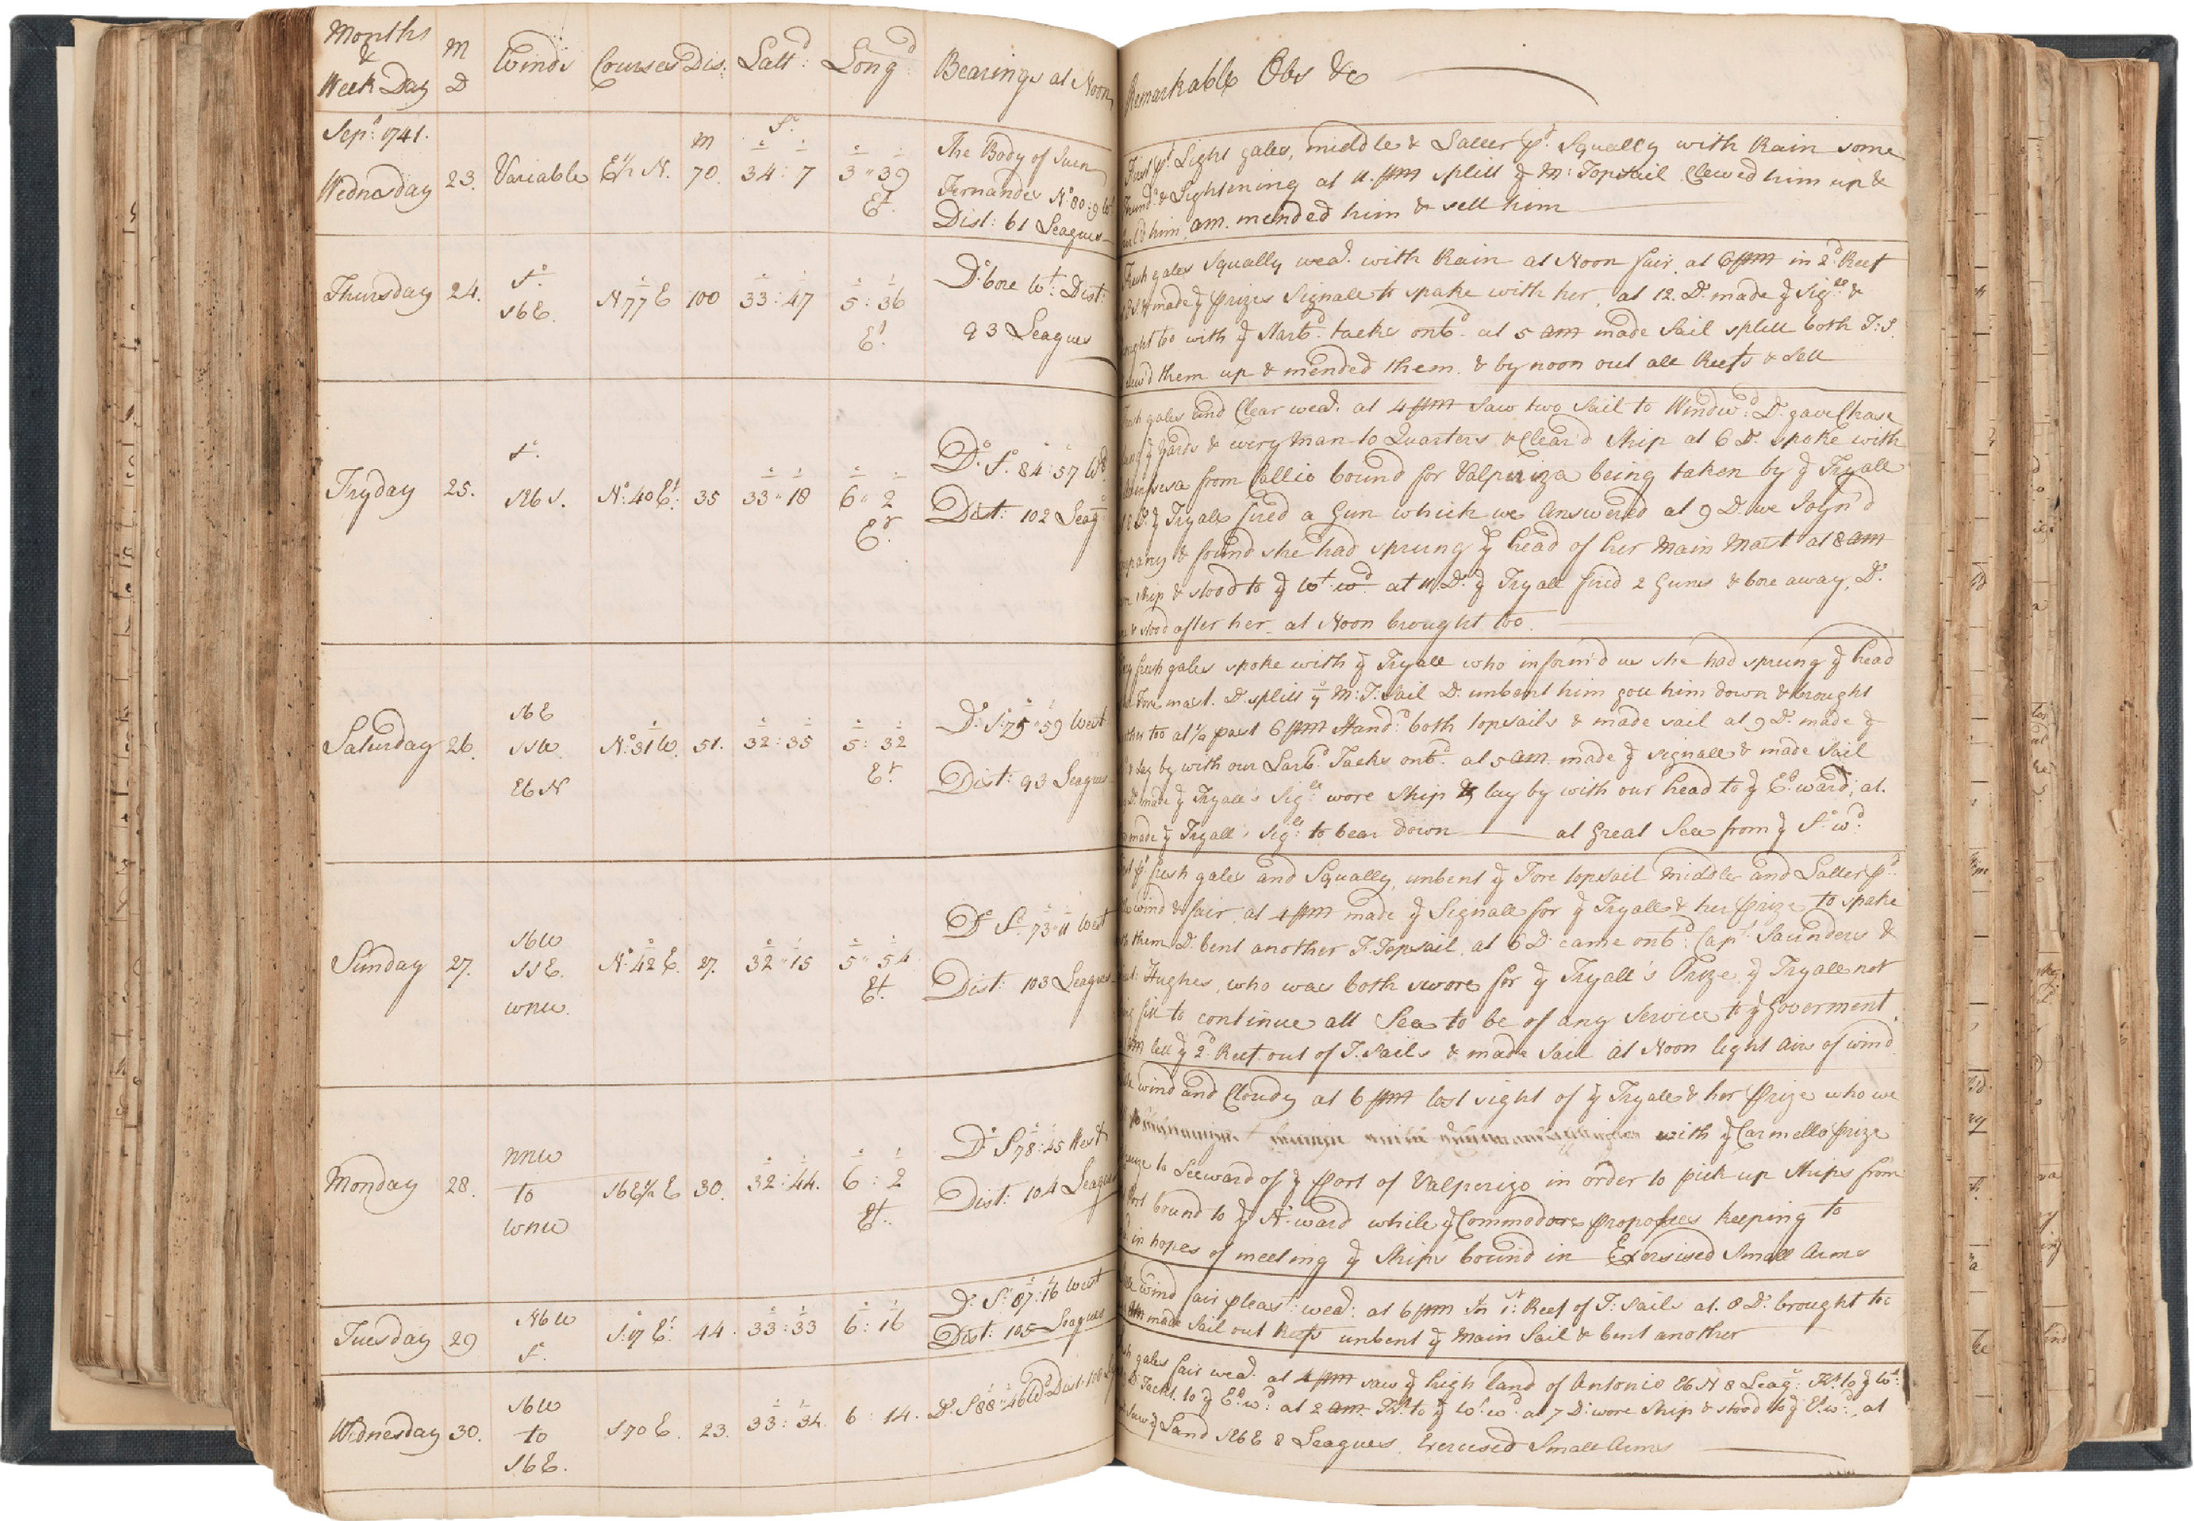 Months
&
Week Day
M
D
Winds
Courses
Dis:
Latt^d:
Long^d
Bearings at Noon
Remarkable Obs &c
Sep^r: 1741.
Wednesday
23.
Variable
E½ N.
M
70.
S^o.
34 : 7
3 " 39
E^t.
The Body of Juan
Fernandes N^o 80 : 9 W^t
Dist: 61 Leagues
First p^t Light gales, middle & Latter p^t. Squally with Rain some
Thund^r & Lightening at 11. pm split y^e M: Topsail Clewed him up &
him, am. mended him & sett him
Thursday
24.
S^o.
SbE.
N 77 E
100
33 : 47
5 : 36
E^t.
D^o bore W^t: Dist:
93 Leagues
Fresh gales Squally wea^r. with Rain at Noon fair, at 6 pm in 2^d Reef
made y^e prizes Signall to spake with her, at 12. D^o. made y^e Sig^ll &
brought to with y^e Starb^d. tacks onb^d. at 5 am made Sail splitt both T: S.
Clew'd them up & mended them. & by noon out all Reefs & Sett
Fryday
25.
S^o.
SEbS.
N^o: 40 E^t:
35
33 " 18
6 " 2
E^t.
D^o. S^o. 84 : 57 W^d.
Dist: 102 Leag^s
Fresh gales and Clear wea^r. at 4 pm saw two Sail to Windw^d: D^o. gave Chase
y^e yards & every man to Quarters, & Clear'd Ship at 6 D^o. spoke with
from Callio bound for Valpariza being taken by y^e Tryall
D^o. y^e Tryall fired a Gun which we Answered at 9 D^o. we Joyn'd
Company & found she had sprung y^e head of her Main Mast at 8 am
ship & stood to y^e W^t.w^d at 11 D^o. y^e Tryall fired 2 Guns & bore away, D^o.
& stood after her, at Noon brought too.
Saturday
26.
SbE
SSW.
EbN
N^o: 31 W.
51.
32 : 35
5 : 32
E^t.
D^o. S^o: 75 " 59 West
Dist: 93 Leagues
fresh gales spoke with y^e Tryall who inform'd us she had sprung y^e head
Fore mast. D^o. splitt y^e M: T: Sail D^o. unbent him gott him down & brought
too at ½ past 6 pm Hand^d: both topsails & made sail at 9 D^o. made y^e
& lay by with our Larb^d. Tacks onb^d. at 5 am. made y^e signall & made Sail
D^o. made y^e Tryall's Sig^ll wore Ship & lay by with our head to y^e E^t.ward, at.
made y^e Tryall's sig^ll: to bear down at Great Sea from y^e S^o.w^d:
Sunday
27.
SbW
SSE.
WNW.
N^o: 42 E.
27.
32 " 15
5 " 54
E^t.
D^o S^o. 73 " 11 West
Dist: 103 Leagues
First p^t. fresh gales and Squally, unbent y^e Fore topsail middle and Latter p^t.
wind & fair, at 4 pm made y^e Signall for y^e Tryall & her prize to spake
with them D^o. bent another F. Topsail, at 6 D^o. came onb^d: Cap^t: Saunders &
Hughes, who was both swore for y^e Tryall's Prize, y^e Tryall not
being fitt to continue att Sea to be of any Service to y^e Goverment,
lett y^e 2^d. Reef out of T. Sails & made Sail at Noon light airs of wind
Monday
28.
NNW
to
WNW
SbE½ E
30.
32 : 44.
6 : 2
E^t.
D^o S 78 : 45 West
Dist: 104 Leagues
wind and Cloudy at 6 pm lost sight of y^e Tryall & her Prize who we
with y^e Carmello prize
cruize to Leeward of y^e Port of Valperizo in order to pick up Ships from
Port bound to y^e N^o.ward while y^e Commodore proposses keeping to
in hopes of meeting y^e Ships bound in Exersised Small Arms
Tuesday
29
NbW
S^o.
S: 17 E^t.
44.
33 : 33
6 : 16
D^o. S^o: 87 : 16 West
Dist: 105 Leagues
Little wind fair pleas^t: wea^r: at 6 pm In 1^st: Reef of T: Sails at. 8 D^o. brought to
am made Sail out Reefs unbent y^e Main Sail & bent another
Wednesday
30.
SbW
to
SbE.
S 70 E.
23.
33 : 34
6 : 14.
D^o. S 88 " 46 W^d Dist:
Fresh gales fair wea^r. at 4 pm saw y^e high Land of Antonio EbN 8 Leag^s: Tk^t. to y^e W^t:
D^o. Tackt. to y^e E^t.w^d: at 2 am. Tk^t. to y^e W^t.w^d: at 7 D^o: wore Ship & stood to y^e E^t.w^d:, at
saw y^e Land SEbE 8 Leagues. Exercised Small Arms